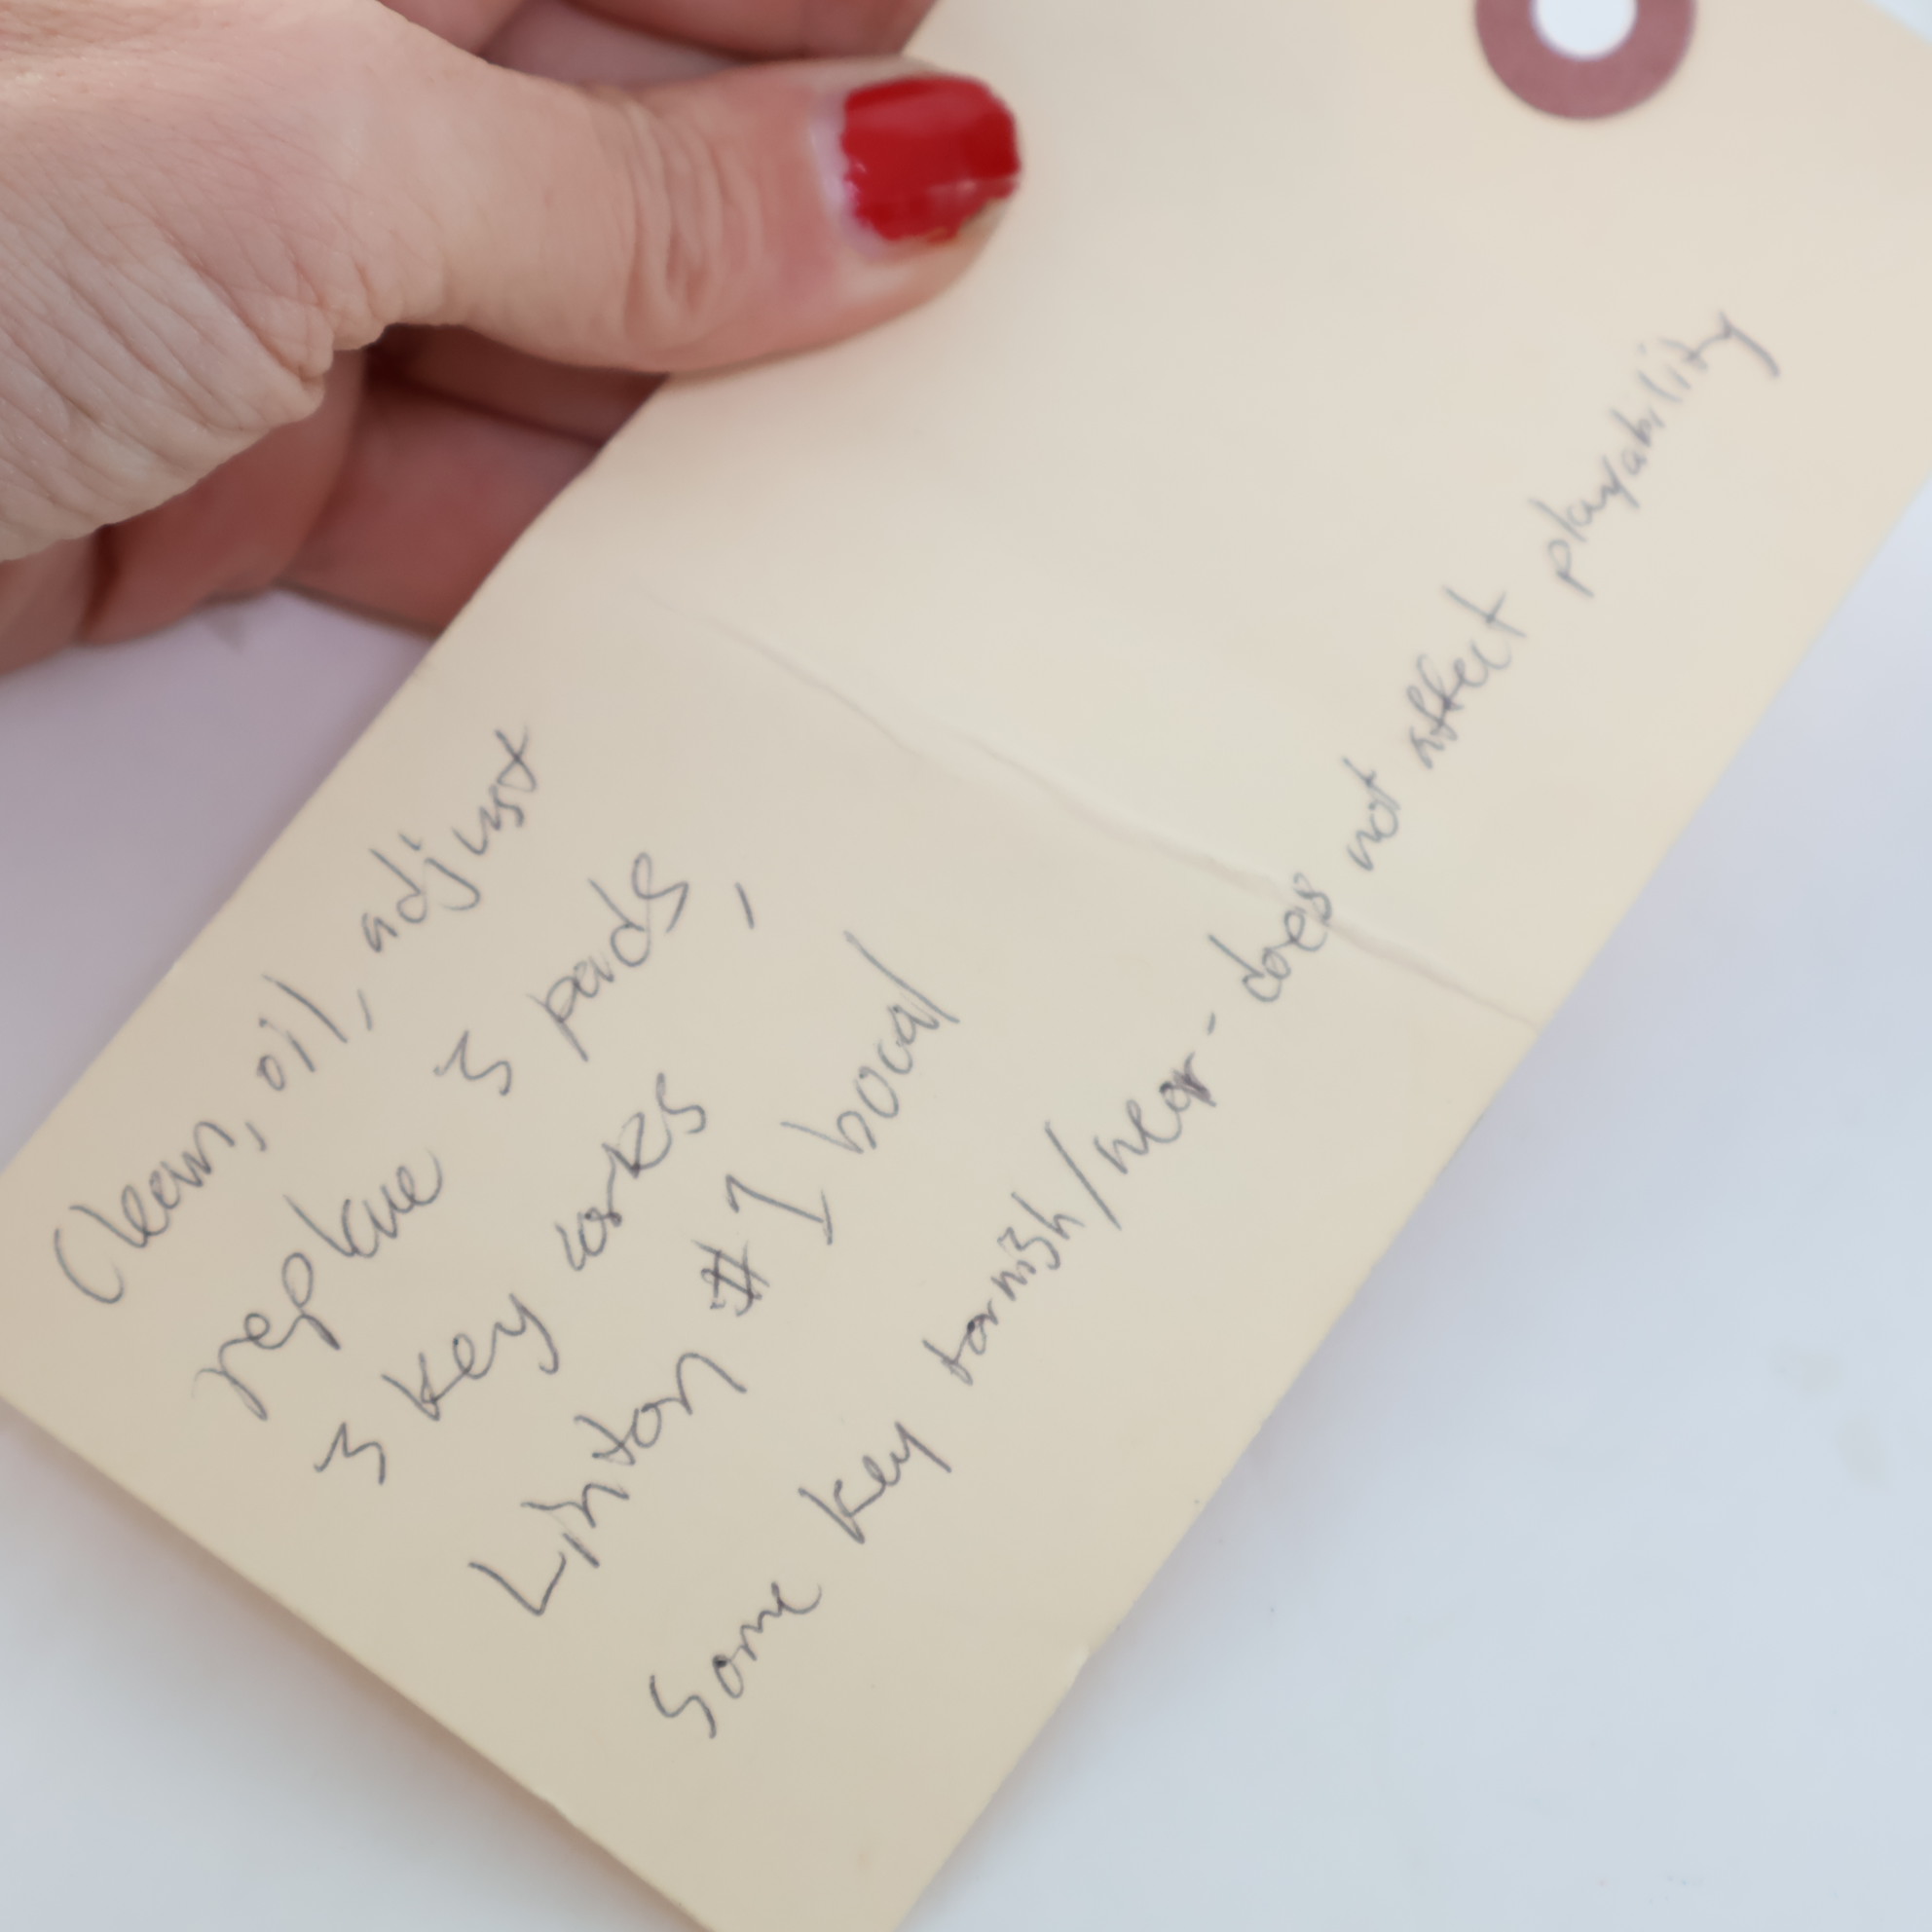 Clean, oil, adjust
replace 3 pads,
3 key corks
Linton #1 bocal
Some key tarnish/wear - does not affect playability